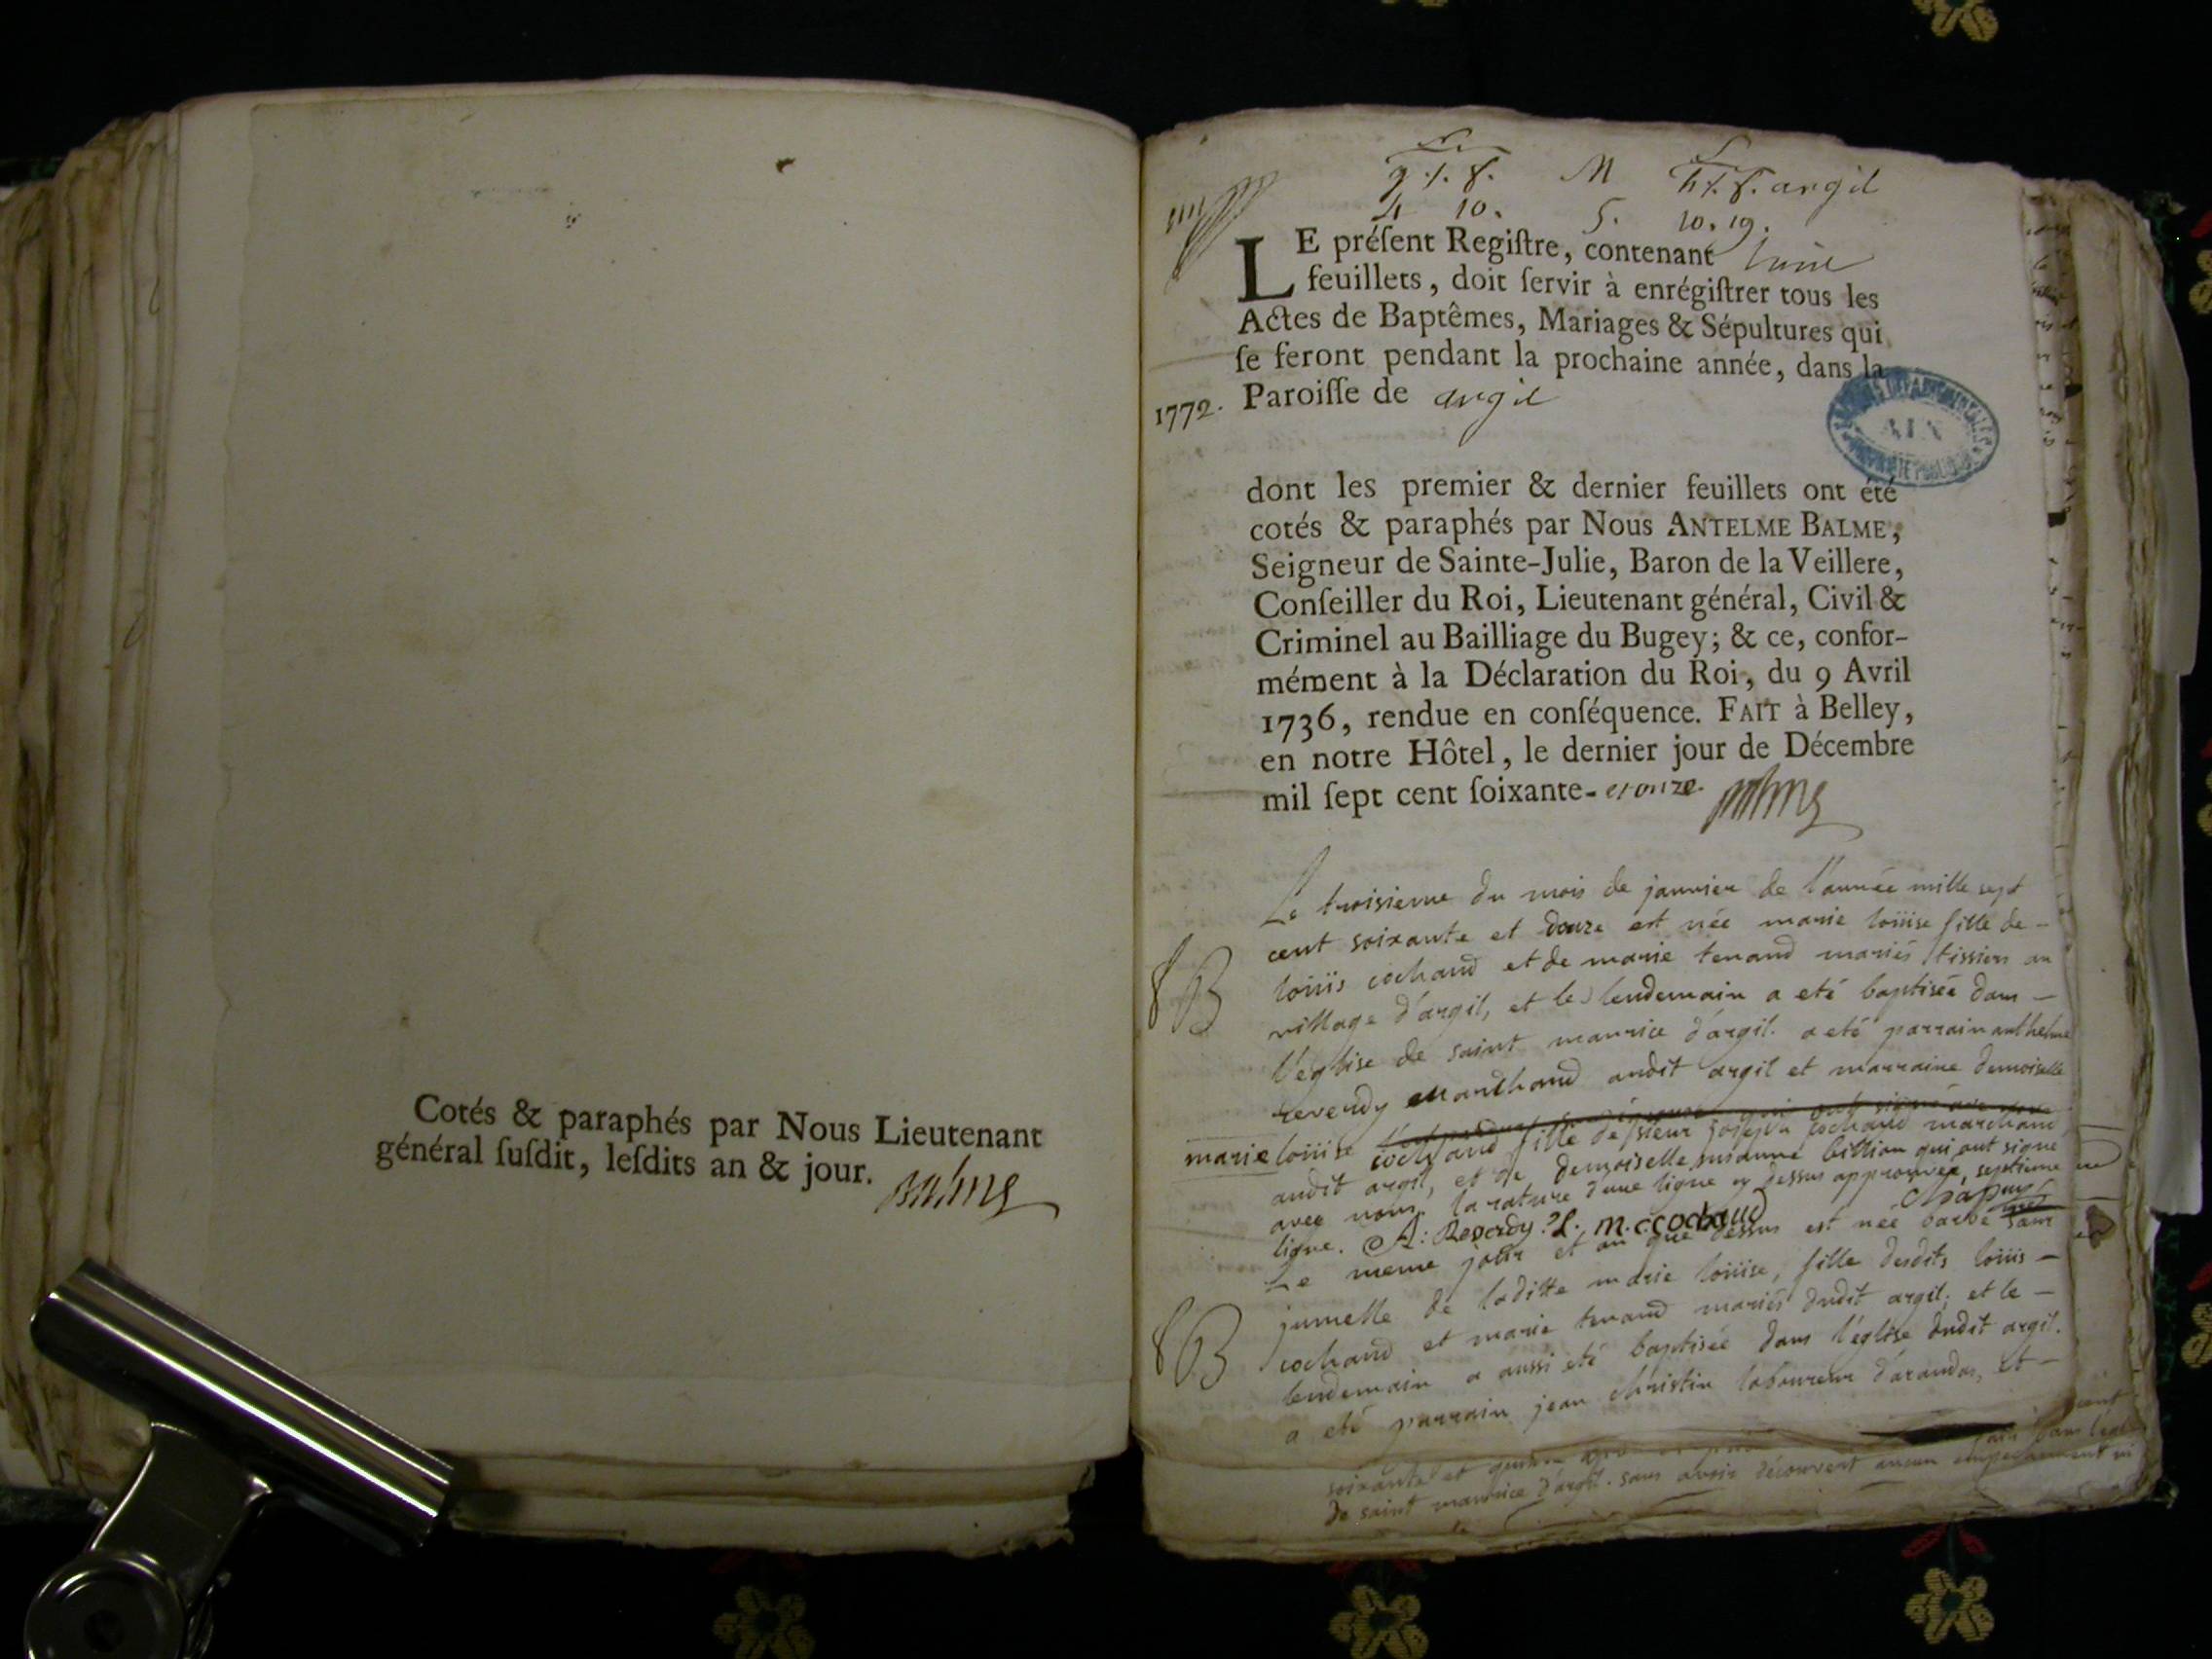 Cotés & paraphés par Nous Lieutenant
général ſuſdit, leſdits an & jour.
Balme
M argil
4 10. 5. 10. 19.
LE préſent Regiſtre, contenant
feuillets, doit ſervir à enrégiſtrer tous les
Actes de Baptêmes, Mariages & Sépultures qui
ſe feront pendant la prochaine année, dans la
1772. Paroiſſe de argil
AIN
dont les premier & dernier feuillets ont été
cotés & paraphés par Nous ANTELME BALME,
Seigneur de Sainte-Julie, Baron de la Veillere,
Conſeiller du Roi, Lieutenant général, Civil &
Criminel au Bailliage du Bugey; & ce, confor-
mément à la Déclaration du Roi, du 9 Avril
1736, rendue en conſéquence. FAIT à Belley,
en notre Hôtel, le dernier jour de Décembre
mil ſept cent ſoixante-et onze. Balme
Le troisieme du mois de janvier de l'année mille sept
cent soixante et douze est née marie loüise fille de -
loüis cochand et de marie tenand mariés tissiers au
village d'argil, et le lendemain a eté baptisée dans -
l'eglise de saint maurice d'argil. a eté parrain anthelme
reverdy marchand audit argil et marraine demoiselle
marie loüise cochand fille de sieur joseph cochand marchand
audit argil, et de demoiselle billion qui ont signé
avec nous. la rature d'une ligne cy dessus approuvée, septieme
ligne. A: Reverdy. M. C Cochaud Chapuis
Le meme jour et an que dessus est née barbe
jumelle de laditte marie loüise, fille desdits loüis -
cochand et marie tenand mariés dudit argil; et le -
lendemain a aussi eté baptisée dans l'église dudit argil.
a eté parrain jean christin laboureur d'arandas, et -
soixante et
de saint maurice d'argil. sans avoir découvert aucun empechement ni